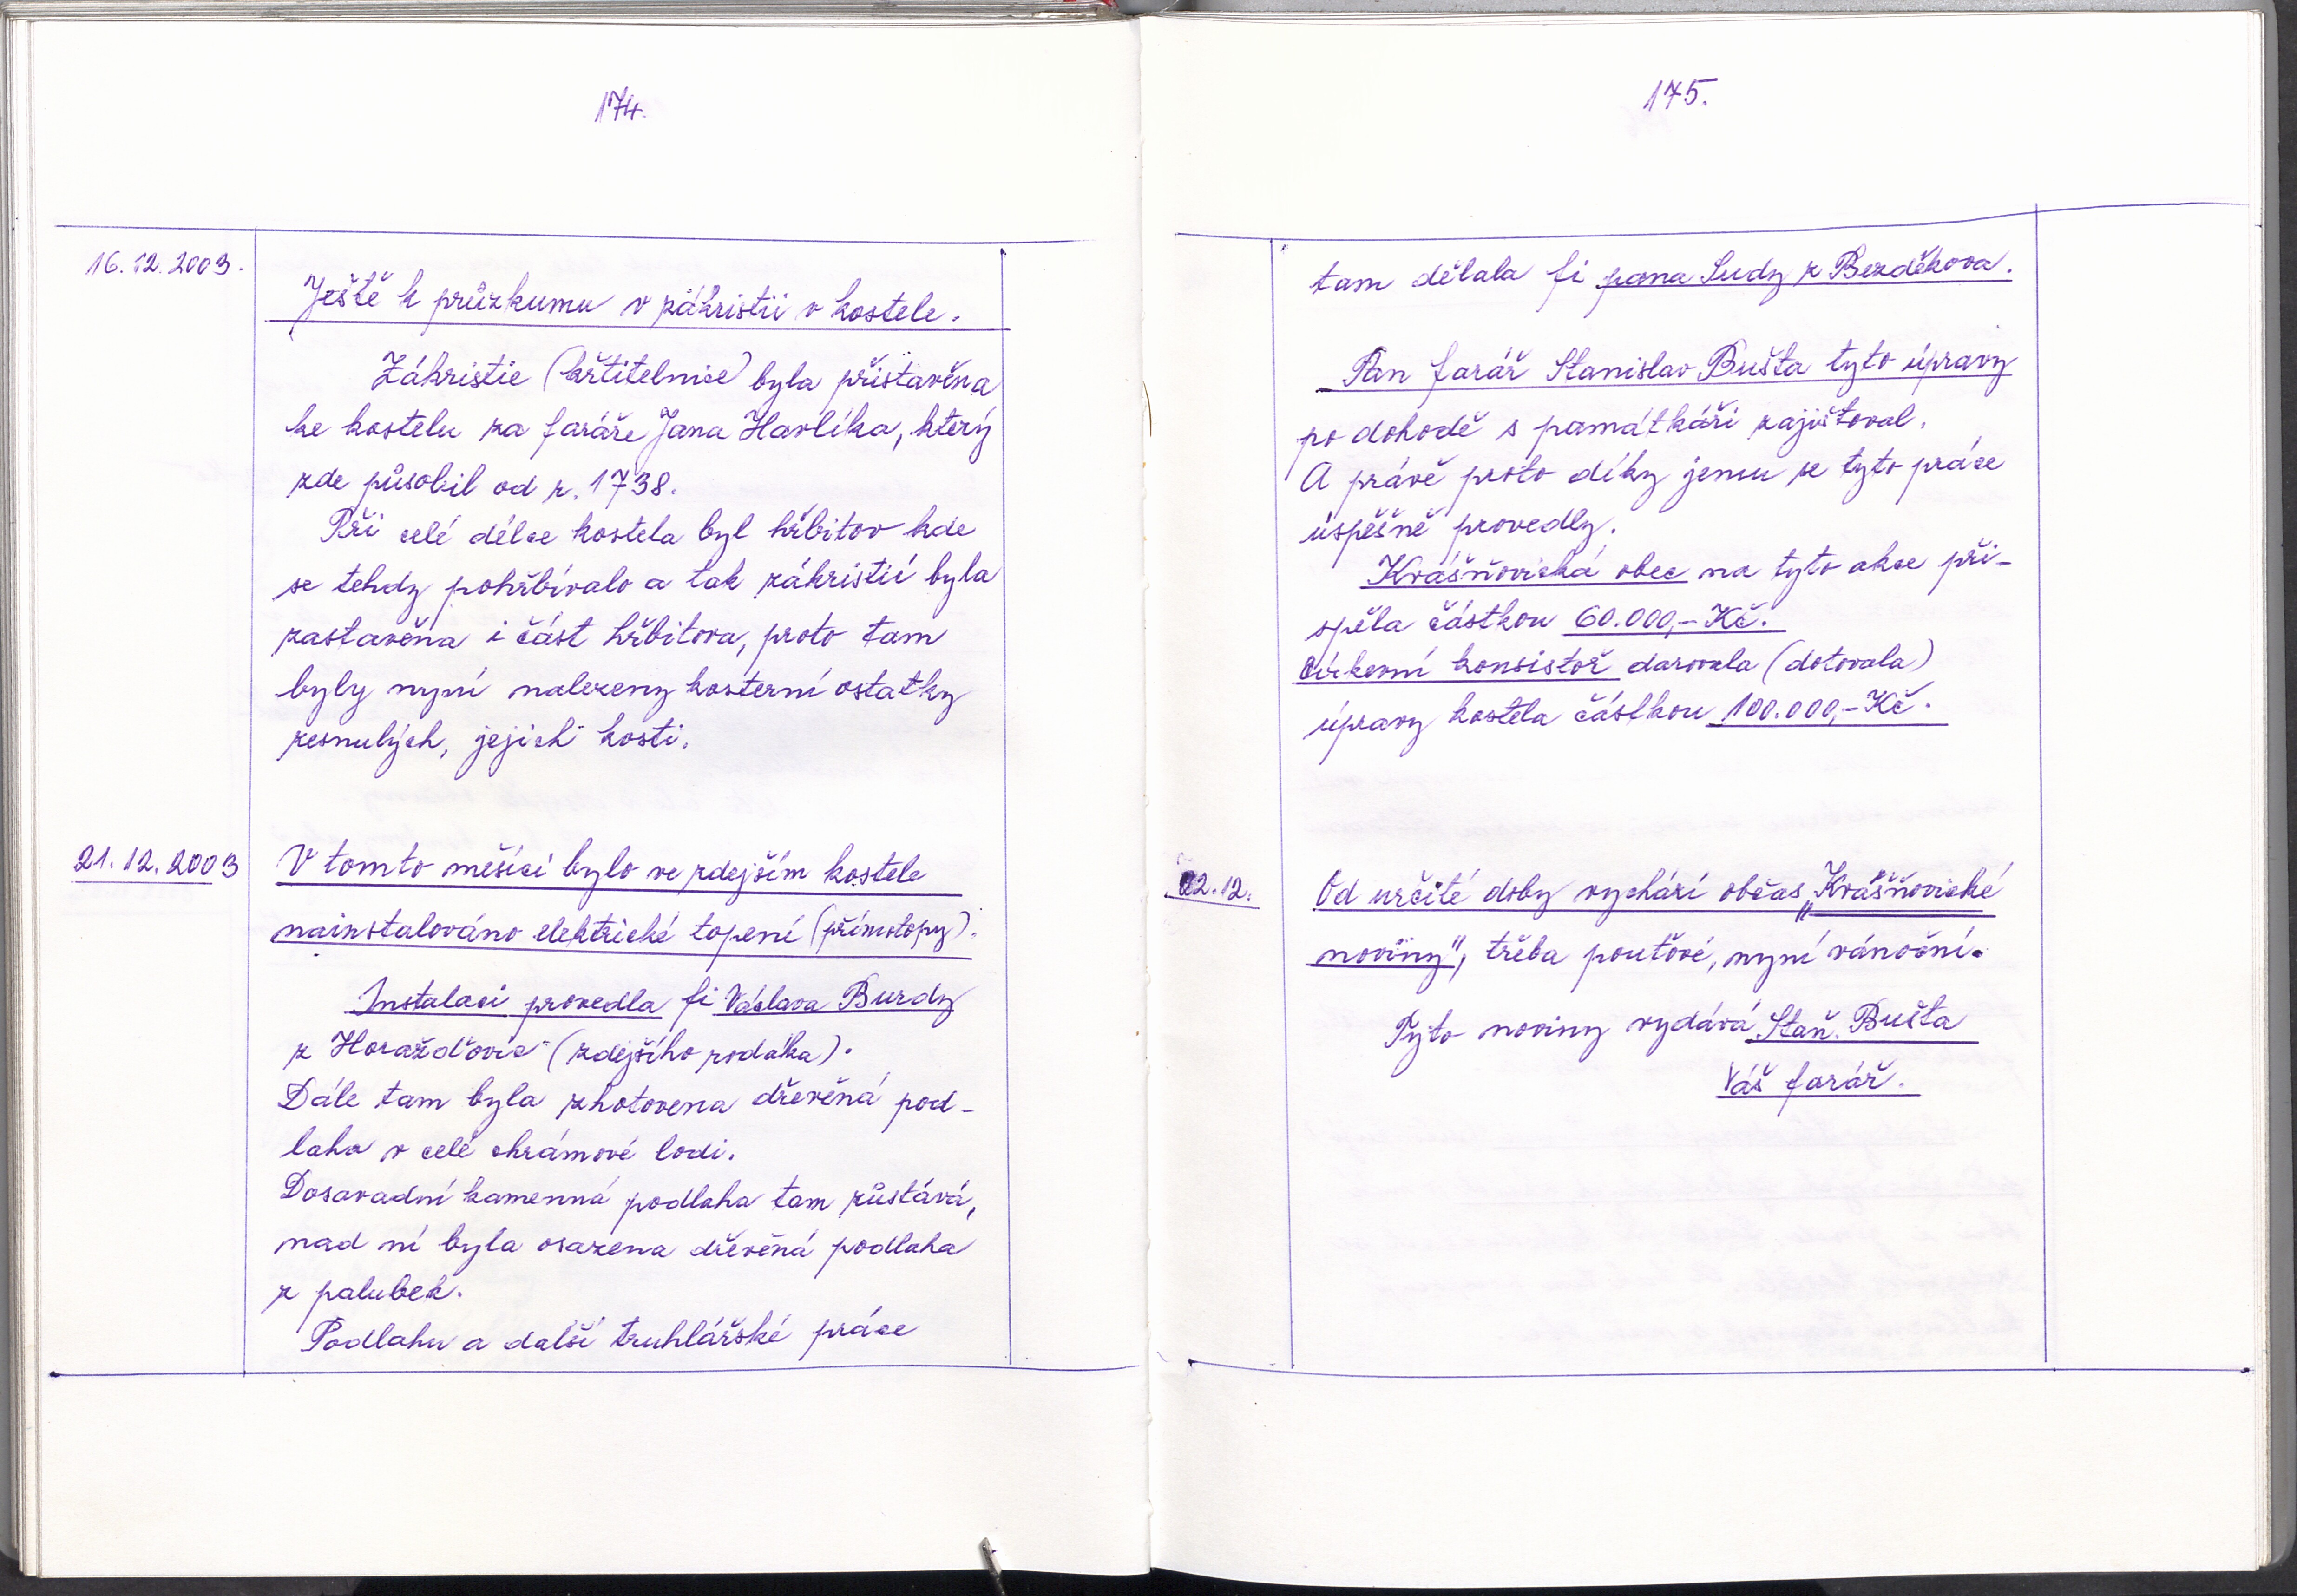 174.
16.12.2003.
Ještě k průzkumu v zákristii v kostele.
Zákristie (křtitelnice) byla přistavěna
ke kostelu za faráře Jana Havlíka, který
zde působil od r. 1738.
Při celé délce kostela byl hřbitov kde
se tehdy pohřbívalo a tak zákristií byla
zastavěna i část hřbitova, proto tam
byly nyní nalezeny kosterní ostatky
zesnulých, jejich kosti.
21.12.2003
V tomto měsíci bylo ve zdejším kostele
nainstalováno elektrické topení (přímotopy).
Instalaci provedla fi Václava Burdy
z Horažďovic (zdejšího rodáka).
Dále tam byla zhotovena dřevěná pod-
laha v celé chrámové lodi.
Dosavadní kamenná podlaha tam zůstává,
nad ní byla osazena dřevěná podlaha
z palubek.
Podlahu a další truhlářské práce
175.
tam dělala fi pana Sudy z Bezděkova.
Pan farář Stanislav Bušta tyto úpravy
po dohodě s památkáři zajišťoval.
A právě proto díky jemu se tyto práce
úspěšně provedly.
Kvášňovická obec na tyto akce při-
spěla částkou 60.000,- Kč.
Církevní konsistoř darovala (dotovala)
úpravy kostela částkou 100.000,- Kč.
22.12.
Od určité doby vychází občas „Kvášňovické
noviny", třeba pouťové, nyní vánoční.
Tyto noviny vydává Stan. Bušta
Váš farář.